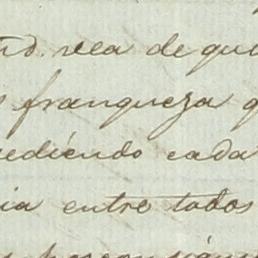 vea de qui
franqueza q
ediendo cada
ia entre todos